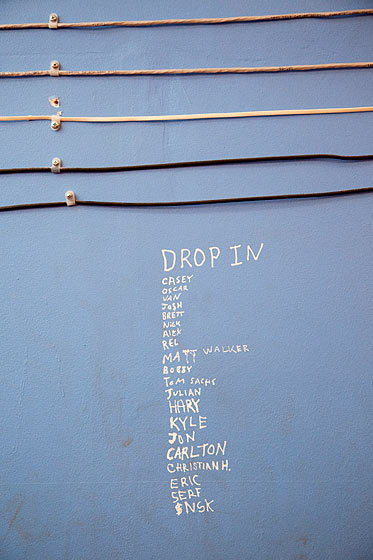 DROP IN
CASEY
OSCAR
VAN
JOSH
BRETT
NICK
ALEX
REL
MATT WALKER
BOBBY
TOM SACHS
JULIAN
HARY
KYLE
JON
CARLTON
CHRISTIAN H.
ERIC
SERF
$NSK